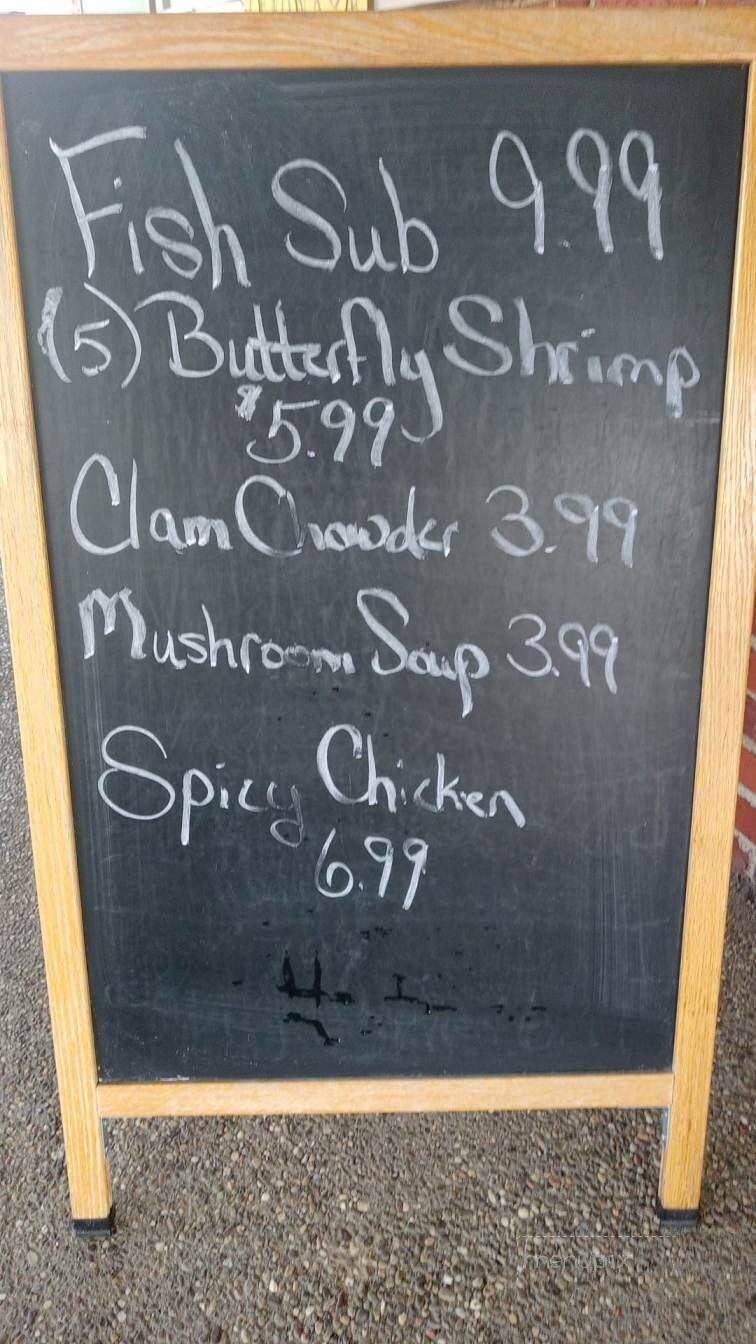 Fish Sub 9.99
(5) Butterfly Shrimp
$5.99
Clam Chowder 3.99
Mushroom Soup 3.99
Spicy Chicken
6.99
menupix